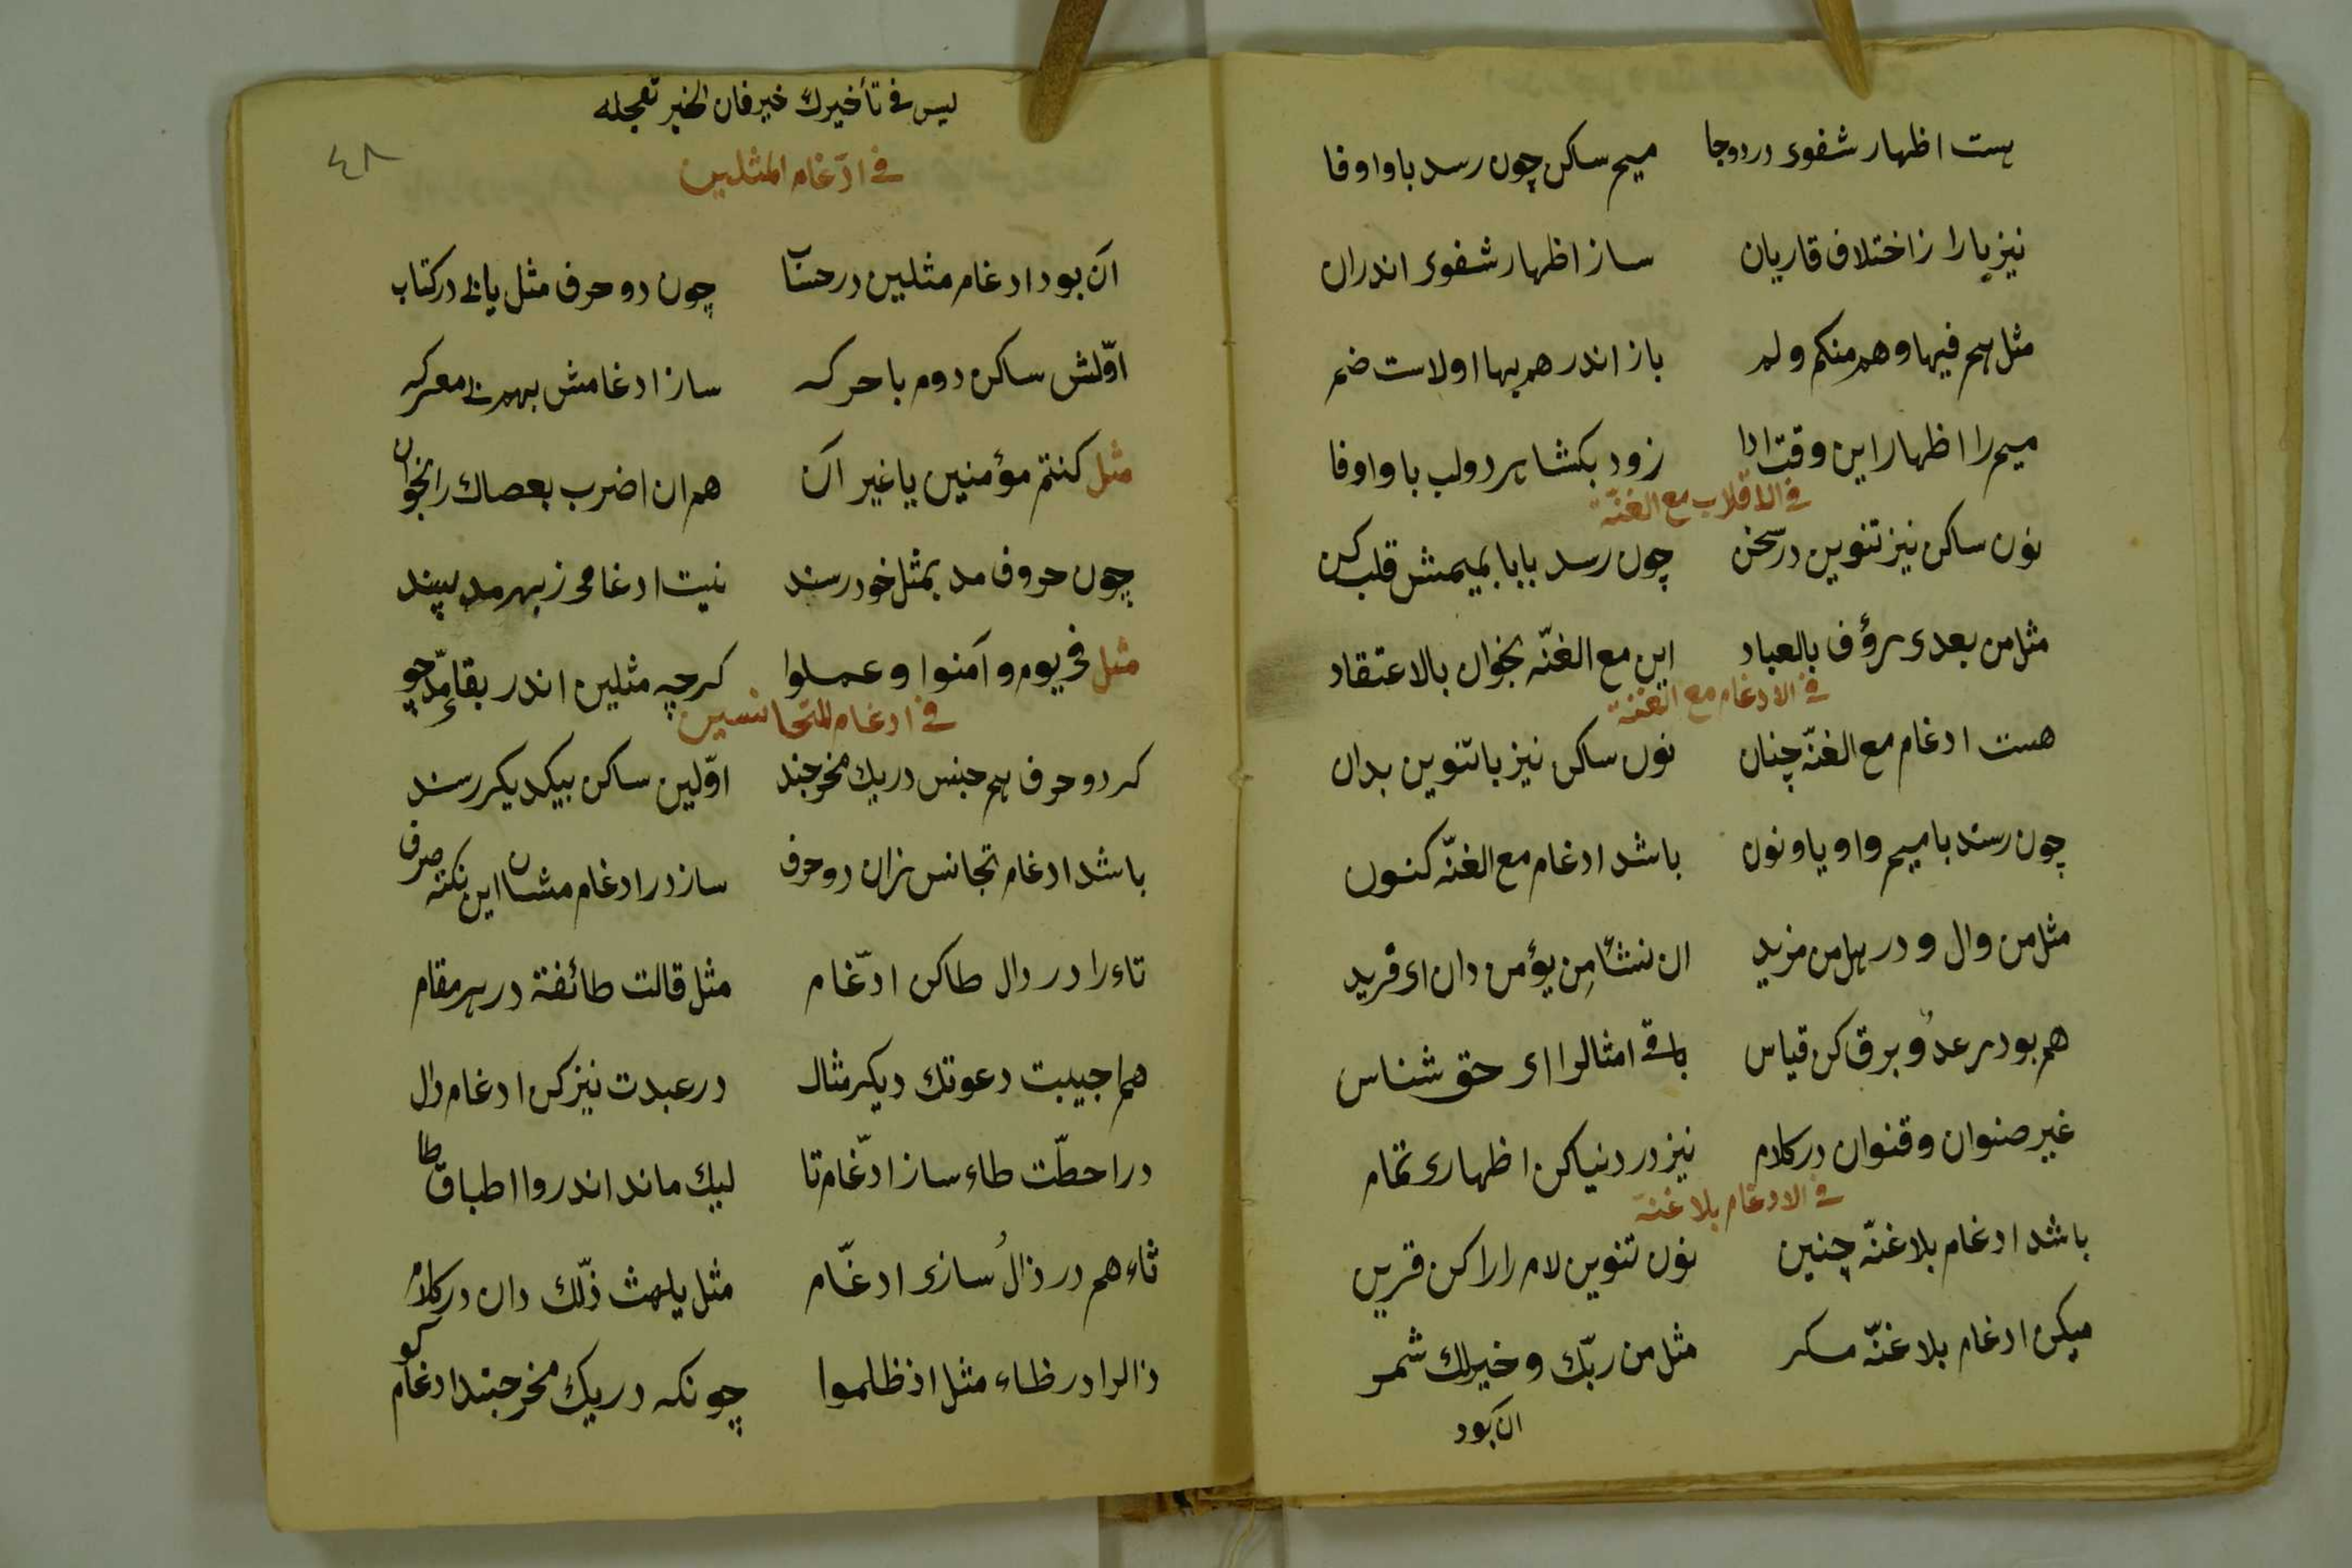 هست اظهار شفوی در دو جا میم ساکن چون رسد با واو فا
نیز با را ز اختلاف قاریان ساز اظهار شفوی اندران
مثل هم فیها و هم منکم و لم باز اندر هم بها اولاست ضم
میم را اظهار این وقت ادا زود بکشا هر دو لب با واو فا
فی الاقلاب مع الغنّة
نون ساکن نیز تنوین در سخن چون رسد با با بمیمش قلب کن
مثل من بعدی رؤف بالعباد این مع الغنّه بخوان بالاعتقاد
فی الادغام مع الغنة
هست ادغام مع الغنّه چنان نون ساکن نیز با تنوین بدان
چون رسند با میم واو یا و نون باشد ادغام مع الغنّه کنون
مثل من وال و در هل من مزید ان نشأ من یؤمن دان ای فرید
هم بود رعدٌ و برق کن قیاس باقی امثالرا ای حق شناس
غیر صنوان و قنوان در کلام نیز در دنیا کن اظهاری تمام
فی الادغام بلا غنة
باشد ادغام بلا غنّه چنین نون تنوین لام را را کن قرین
میکن ادغام بلا غنّه مکر مثل من ربّك و خیر لك شمر
ان بود
لیس فی تأخیرك خیر فان الخیر تعجله
٤٨
فی ادّغام المثلین
آن بود ادغام مثلین در حساب چون دو حرف مثل یابی در کتاب
اوّلش ساکن دوم با حرکه ساز ادغامش بهر بی معرکه
مثل کنتم مؤمنین یا غیر آن هم ان اضرب بعصاك را بخوان
چون حروف مد بمثل خود رسند نیت ادغامی ز بهر مد پسند
مثل فی یوم و آمنوا و عملوا کرچه مثلین اندر بقاء مدّ جو
فی ادغام المتجانسین
کر دو حرف هم جنس در یك مخرجند اوّلین ساکن بیکدیکر رسند
باشد ادغام تجانس زان دو حرف ساز در ادغام مشان این نکته صرف
تاء را در دال طا کن ادّغام مثل قالت طائفة در هر مقام
هم اجیبت دعوتك دیکر مثال در عبدت نیز کن ادغام دال
در احطّت طاء ساز ادّغام تا لیك ماند اندر و اطباق طا
ثاء هم در ذال سازی ادغّام مثل یلهث ذّلك دان در کلام
ذالرا در ظاء مثل اذ ظلموا چونکه در یك مخرجند ادغام کو